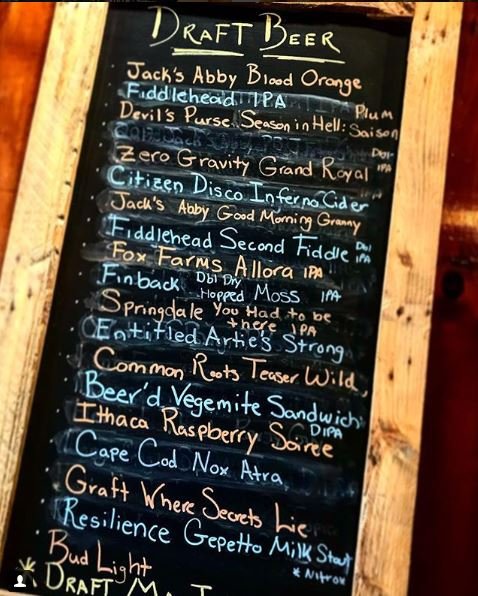 DRAFT BEER
Jack's Abby Blood Orange
Fiddlehead IPA
Devil's Purse Season in Hell: Plum Saison
Zero Gravity Grand Royal Dbl IPA
Citizen Disco Inferno Cider
Jack's Abby Good Morning Granny
Fiddlehead Second Fiddle Dbl IPA
Fox Farms Allora IPA
Finback Dbl Dry Hopped Moss IPA
Springdale You Had to be there IPA
Entitled Artie's Strong
Common Roots Teaser Wild
Beer'd Vegemite Sandwich DIPA
Ithaca Raspberry Soiree
Cape Cod Nox Atra
Graft Where Secrets Lie
Resilience Gepetto Milk Stout
* Nitro *
Bud Light
DRAFT